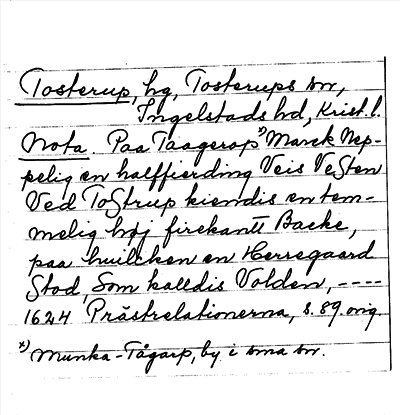 Tosterup, hg, Tosterups sn,
Ingelstads hd, Krist. l.
Nota. Paa Taagerop x) Marck Nep-
pelig en halffierding Veis VeSten
Ved ToStrup kiendis en tem-
melig høj firekantt Backe,
paa huilcken en Herregaard
Stod, Som kalldis Volden, ----
1624 Prästrelationerna, s. 89. orig.
x) Munka-Tågarp, by i sma sn.